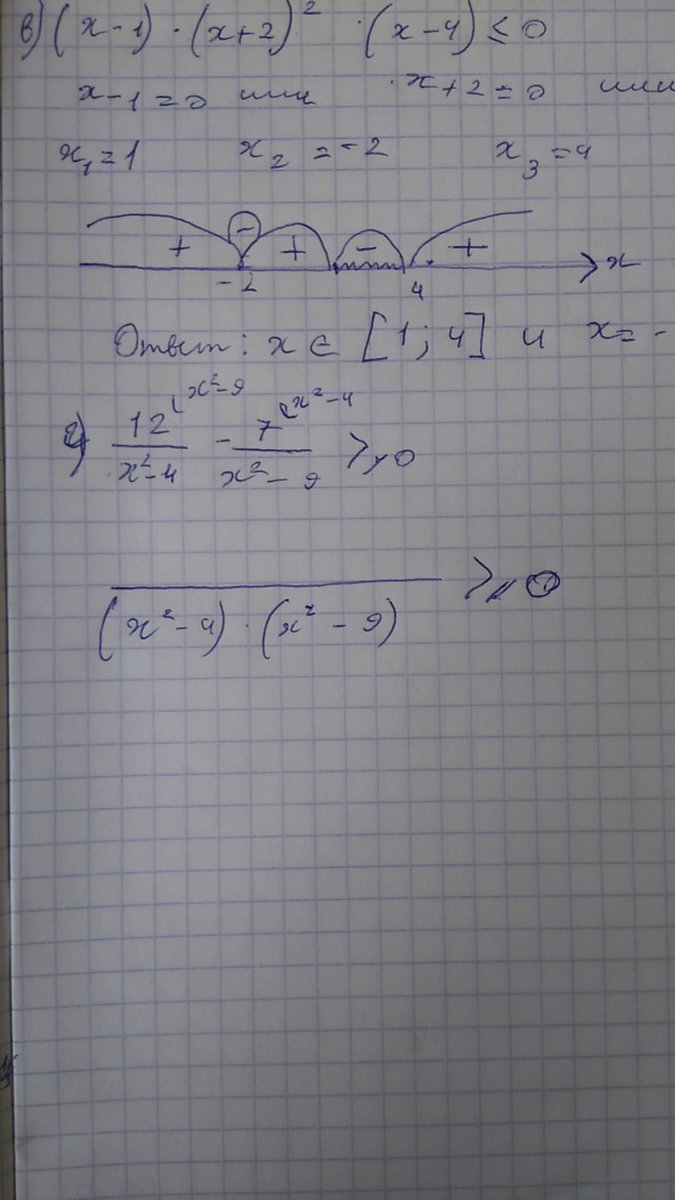 в) (x-1)·(x+2)²·(x-4)≤0
x-1=0 или x+2=0 или
x₁=1 x₂=-2 x₃=4
+ - + - + x
-2 4
Ответ: x∈[1;4] и x=-
г) 12^(x²-9)/(x²-4) - 7^(x²-4)/(x²-9) ≥0
/((x²-4)·(x²-9)) ≥0